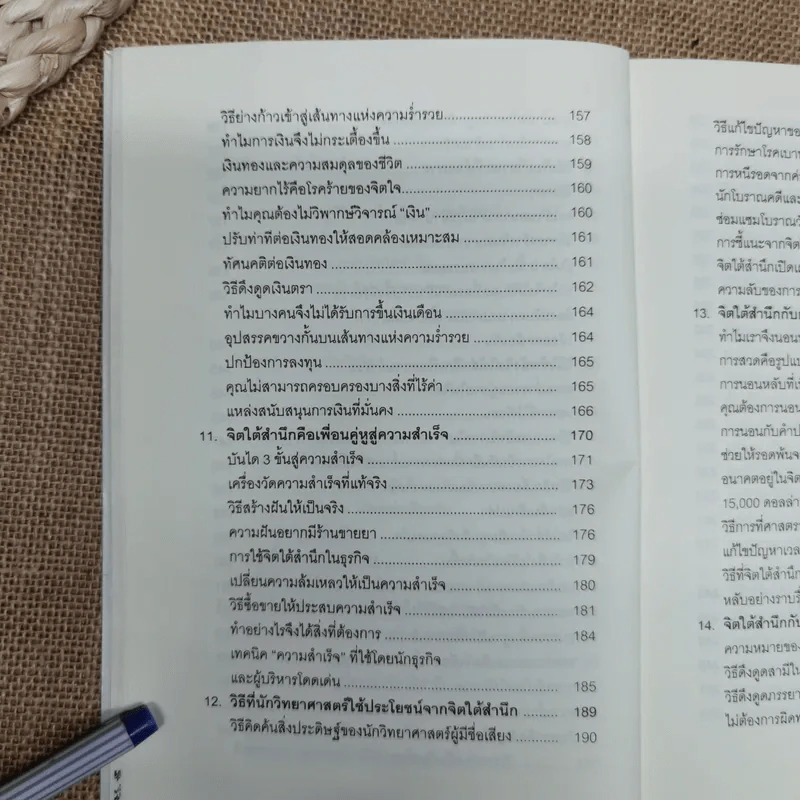 วิธีย่างก้าวเข้าสู่เส้นทางแห่งความร่ำรวย........................ 157
ทำไมการเงินจึงไม่กระเตื้องขึ้น .................................. 158
เงินทองและความสมดุลของชีวิต ............................... 159
ความยากไร้คือโรคร้ายของจิตใจ................................ 160
ทำไมคุณต้องไม่วิพากษ์วิจารณ์ “เงิน” ......................... 160
ปรับท่าทีต่อเงินทองให้สอดคล้องเหมาะสม ................... 161
ทัศนคติต่อเงินทอง ............................................... 161
วิธีดึงดูดเงินตรา .................................................. 162
ทำไมบางคนจึงไม่ได้รับการขึ้นเงินเดือน ...................... 164
อุปสรรคขวางกั้นบนเส้นทางแห่งความร่ำรวย ................. 164
ปกป้องการลงทุน ................................................. 165
คุณไม่สามารถครอบครองบางสิ่งที่ไร้ค่า ....................... 165
แหล่งสนับสนุนการเงินที่มั่นคง .................................. 166
11. จิตใต้สำนึกคือเพื่อนคู่หูสู่ความสำเร็จ ..................... 170
บันได 3 ขั้นสู่ความสำเร็จ ........................................ 171
เครื่องวัดความสำเร็จที่แท้จริง .................................... 173
วิธีสร้างฝันให้เป็นจริง ............................................. 176
ความฝันอยากมีร้านขายยา ...................................... 176
การใช้จิตใต้สำนึกในธุรกิจ ....................................... 179
เปลี่ยนความล้มเหลวให้เป็นความสำเร็จ ....................... 180
วิธีซื้อขายให้ประสบความสำเร็จ ................................. 181
ทำอย่างไรจึงได้สิ่งที่ต้องการ .................................... 184
เทคนิค “ความสำเร็จ” ที่ใช้โดยนักธุรกิจ
และผู้บริหารโดดเด่น .............................................. 185
12. วิธีที่นักวิทยาศาสตร์ใช้ประโยชน์จากจิตใต้สำนึก ........ 189
วิธีคิดค้นสิ่งประดิษฐ์ของนักวิทยาศาสตร์ผู้มีชื่อเสียง ......... 190
วิธีแก้ไขปัญหาขอ
การรักษาโรคเบา
การหนีรอดจากค่
นักโบราณคดีและ
ซ่อมแซมโบราณวั
การชี้แนะจากจิต
จิตใต้สำนึกเปิดเ
ความลับของการ
13. จิตใต้สำนึกกับ
ทำไมเราจึงนอน
การสวดคือรูปแ
การนอนหลับที่
คุณต้องการนอน
การนอนกับคำป
ช่วยให้รอดพ้น
อนาคตอยู่ในจิต
15,000 ดอลล่า
วิธีการที่ศาสตร
แก้ไขปัญหาเวล
วิธีที่จิตใต้สำนึก
หลับอย่างราบรื
14. จิตใต้สำนึกกับ
ความหมายของ
วิธีดึงดูดสามีใน
วิธีดึงดูดภรรยา
ไม่ต้องการผิดท